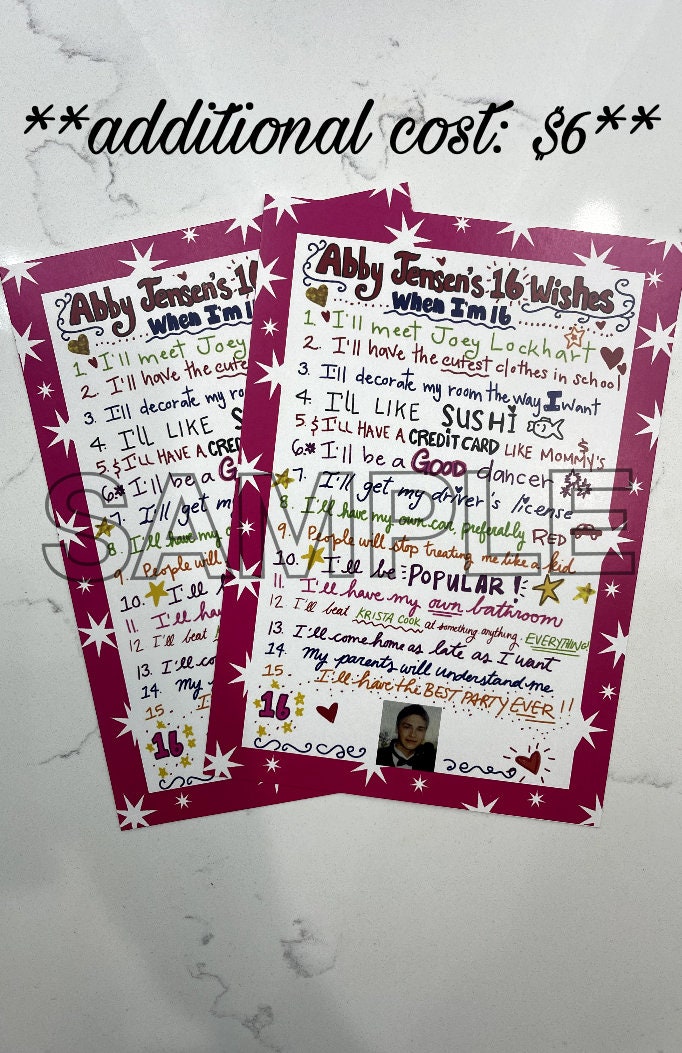 **additional cost: $6**
Abby Jensen's 16 Wishes
When I'm 16
1. I'll meet Joey Lockhart
2. I'll have the cutest clothes in school
3. I'll decorate my room the way I want
4. I'LL LIKE SUSHI
5. $ I'LL HAVE A CREDIT CARD LIKE MOMMY'S $
6. I'll be a GOOD dancer
7. I'll get my driver's license
8. I'll have my own car, preferably RED
9. People will stop treating me like a kid
10. I'll be POPULAR!
11. I'll have my own bathroom
12 I'll beat KRISTA COOK at something anything. EVERYTHING!
13. I'll come home as late as I want
14. My parents will understand me
15. I'll have the BEST PARTY EVER!!
16
Abby Jensen's 1
When I'm 1
1 I'll meet Joey
2. I'll have the cute
3. I'll decorate my ro
4. I'LL LIKE S
5. $ I'LL HAVE A CRED
6. I'll be a G
7. I'll get m
8 I'll have my o
9. People will
10. I'll b
11. I'll ha
12 I'll beat
13. I'll co
14. My
15. I
16
SAMPLE